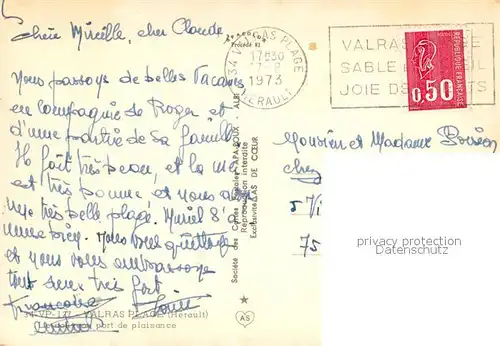 Chère Mireille, cher Claude
Nous passons de belles vacances
en compagnie de Roger et
d'une partie de sa famille
Il fait très beau, et la mer
est très bonne et nous avons
une très belle plage. Muriel
Nous vous quittons
et nous vous embrassons
tout
très fort
Françoise
34 VP-177 - VALRAS PLAGE (Hérault)
port de plaisance
Procédé KI
Société des Cartes Postales APA-POUX - ALBI
Reproduction interdite
Exclusivité AS DE CŒUR
AS
34 VALRAS PLAGE
17H30
7
1973
HERAULT
VALRAS PLAGE
SABLE
JOIE DE
REPUBLIQUE FRANCAISE
0,50
Monsieur et Madame
Chez
57/1
75
privacy protection
Datenschutz